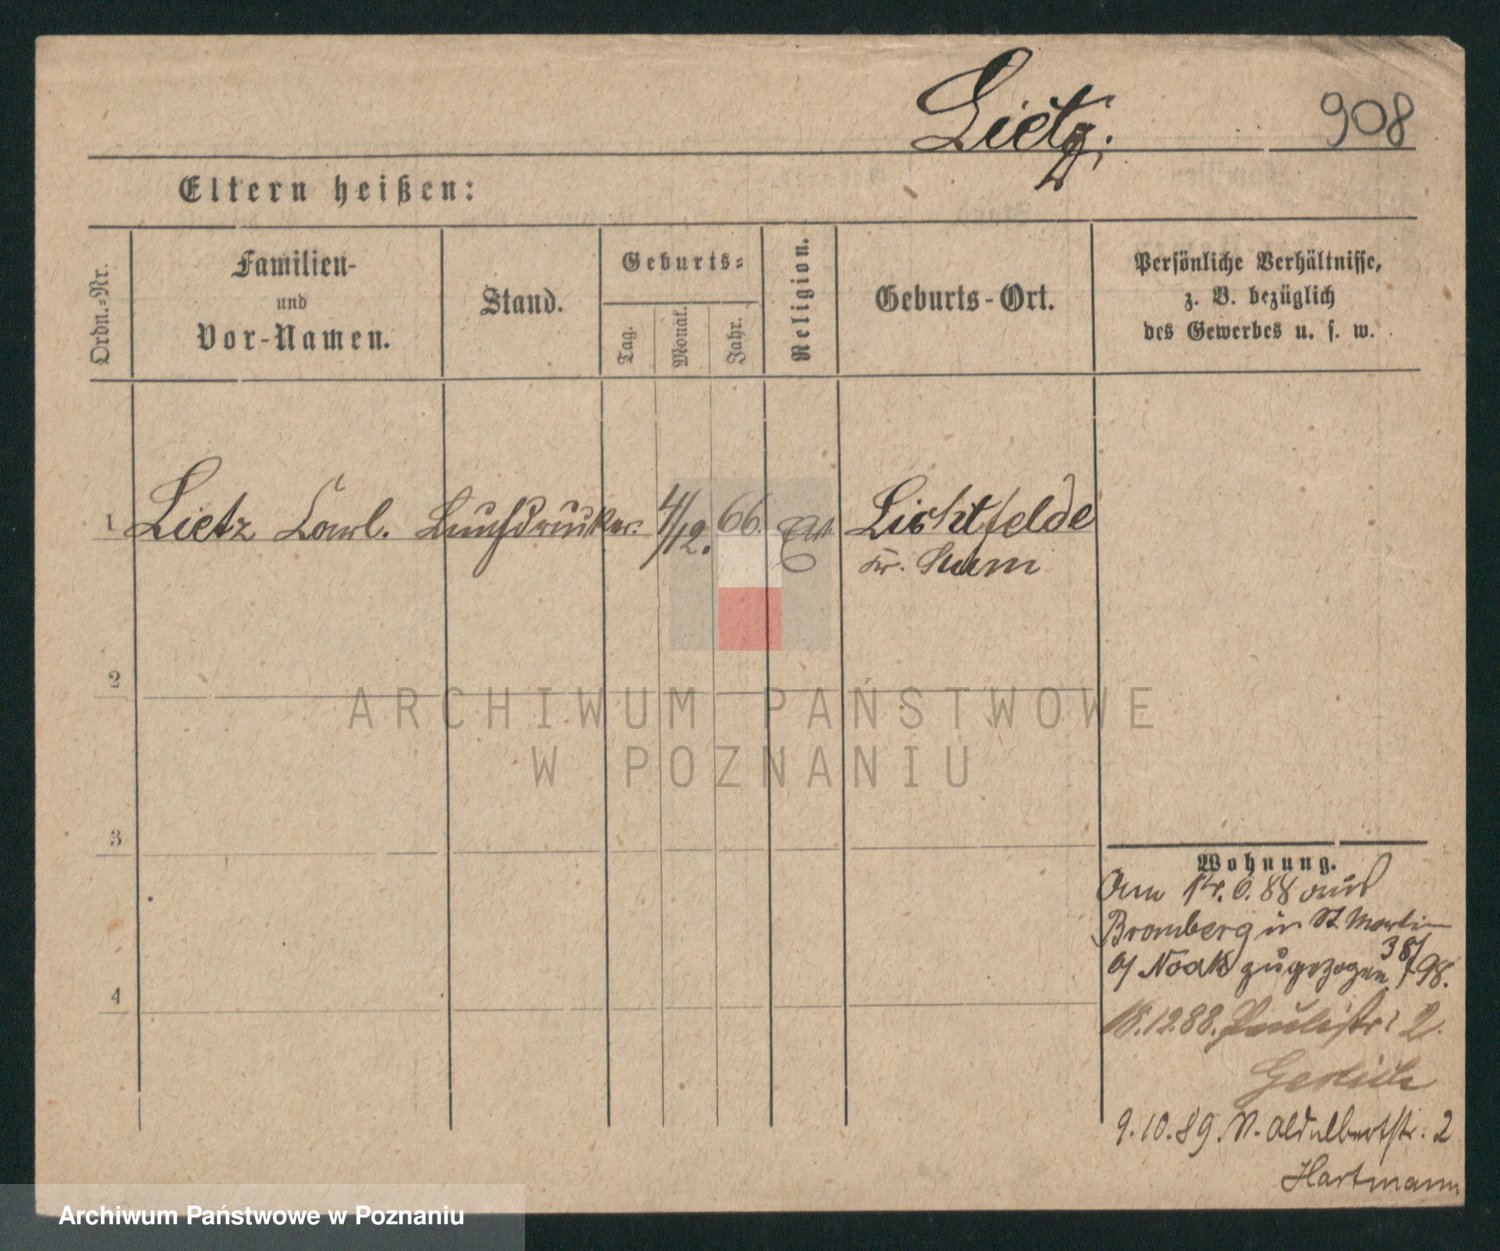 Lietz. 908
Eltern heißen:
Ordn.-Nr.
Familien-
und
Vor-Namen.
Stand.
Geburts-
Tag.
Monat.
Jahr.
Religion.
Geburts-Ort.
Persönliche Verhältnisse,
z. B. bezüglich
des Gewerbes u. s. w.
1 Lietz Carl. Buchdrucker. 4/12. 66. Lichtfelde
Kr. Stum
2
3
4
ARCHIWUM PAŃSTWOWE
W POZNANIU
Wohnung.
Am 6. 88 aus
Bromberg in St. Martin
b/ Noak zugezogen 38/ 98.
18.12.88. Paulistr: 2.
Gerlich
9.10.89. N. Adalbertstr. 2
Hartmann
Archiwum Państwowe w Poznaniu